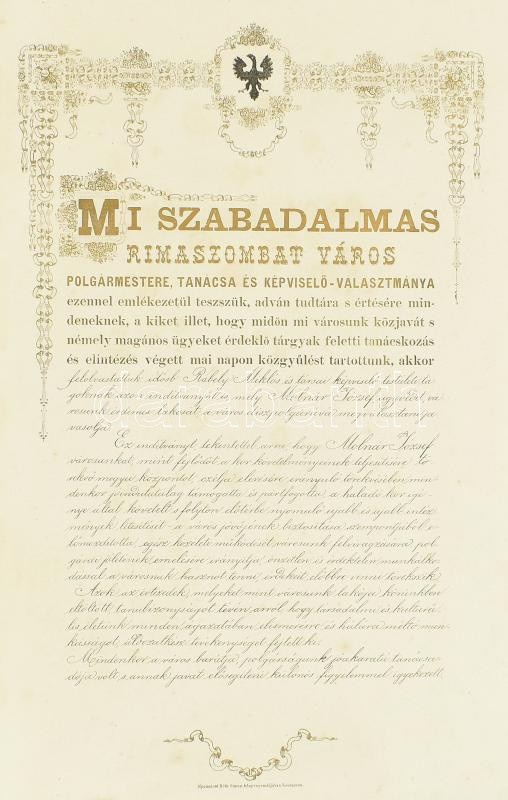 MI SZABADALMAS
RIMASZOMBAT VÁROS
POLGÁRMESTERE, TANÁCSA ÉS KÉPVISELŐ-VÁLASZTMÁNYA
ezennel emlékezetül teszszük, adván tudtára s értésére min-
deneknek, a kiket illet, hogy midőn mi városunk közjavát s
némely magános ügyeket érdeklő tárgyak feletti tanácskozás
és elintézés végett mai napon közgyűlést tartottunk, akkor
felolvastatták idősb Rábely Miklós és társai képviselő testületi ta-
goknak azon indítványát is, mely Molnár József ügyvéd, vá-
rosunk érdemes lakosát a város díszpolgárává megválasztani ja-
vasolja.
Ez indítványt, tekintettel arra, hogy Molnár József
városunkat, mint fejlődőt, a kor követelményeinek teljesítésére tö-
rekvő megyei központot, czélja elérésére irányuló törekvésében min-
denkor jóindulatulag támogatta és pártfogolta, a haladó kor igé-
nye által követelt s folyton előtérbe nyomuló újabb és újabb intéz-
mények létesítését a város jövőjének biztosítása szempontjából e-
lőmozdította, egész közéleti működését városunk felvirágzására, pol-
gárai jólétének emelésére irányítja, önzetlen és érdektelen munkálko-
dással a városnak hasznot tenni, érdekeit előbbre vinni törekszik.
Azok az évtizedek, melyeket mint városunk lakója körünkben
eltöltött, tanúbizonyságot tevén arról, hogy társadalmi és kulturá-
lis életünk minden ágazatában elismerésre és hálára méltó mun-
kásságot, áldozatkész tevékenységet fejtett ki.
Mindenkor a város barátja, polgárságunk jóakaratú tanácsa-
dója volt s annak javát elősegíteni különös figyelemmel igyekezett.